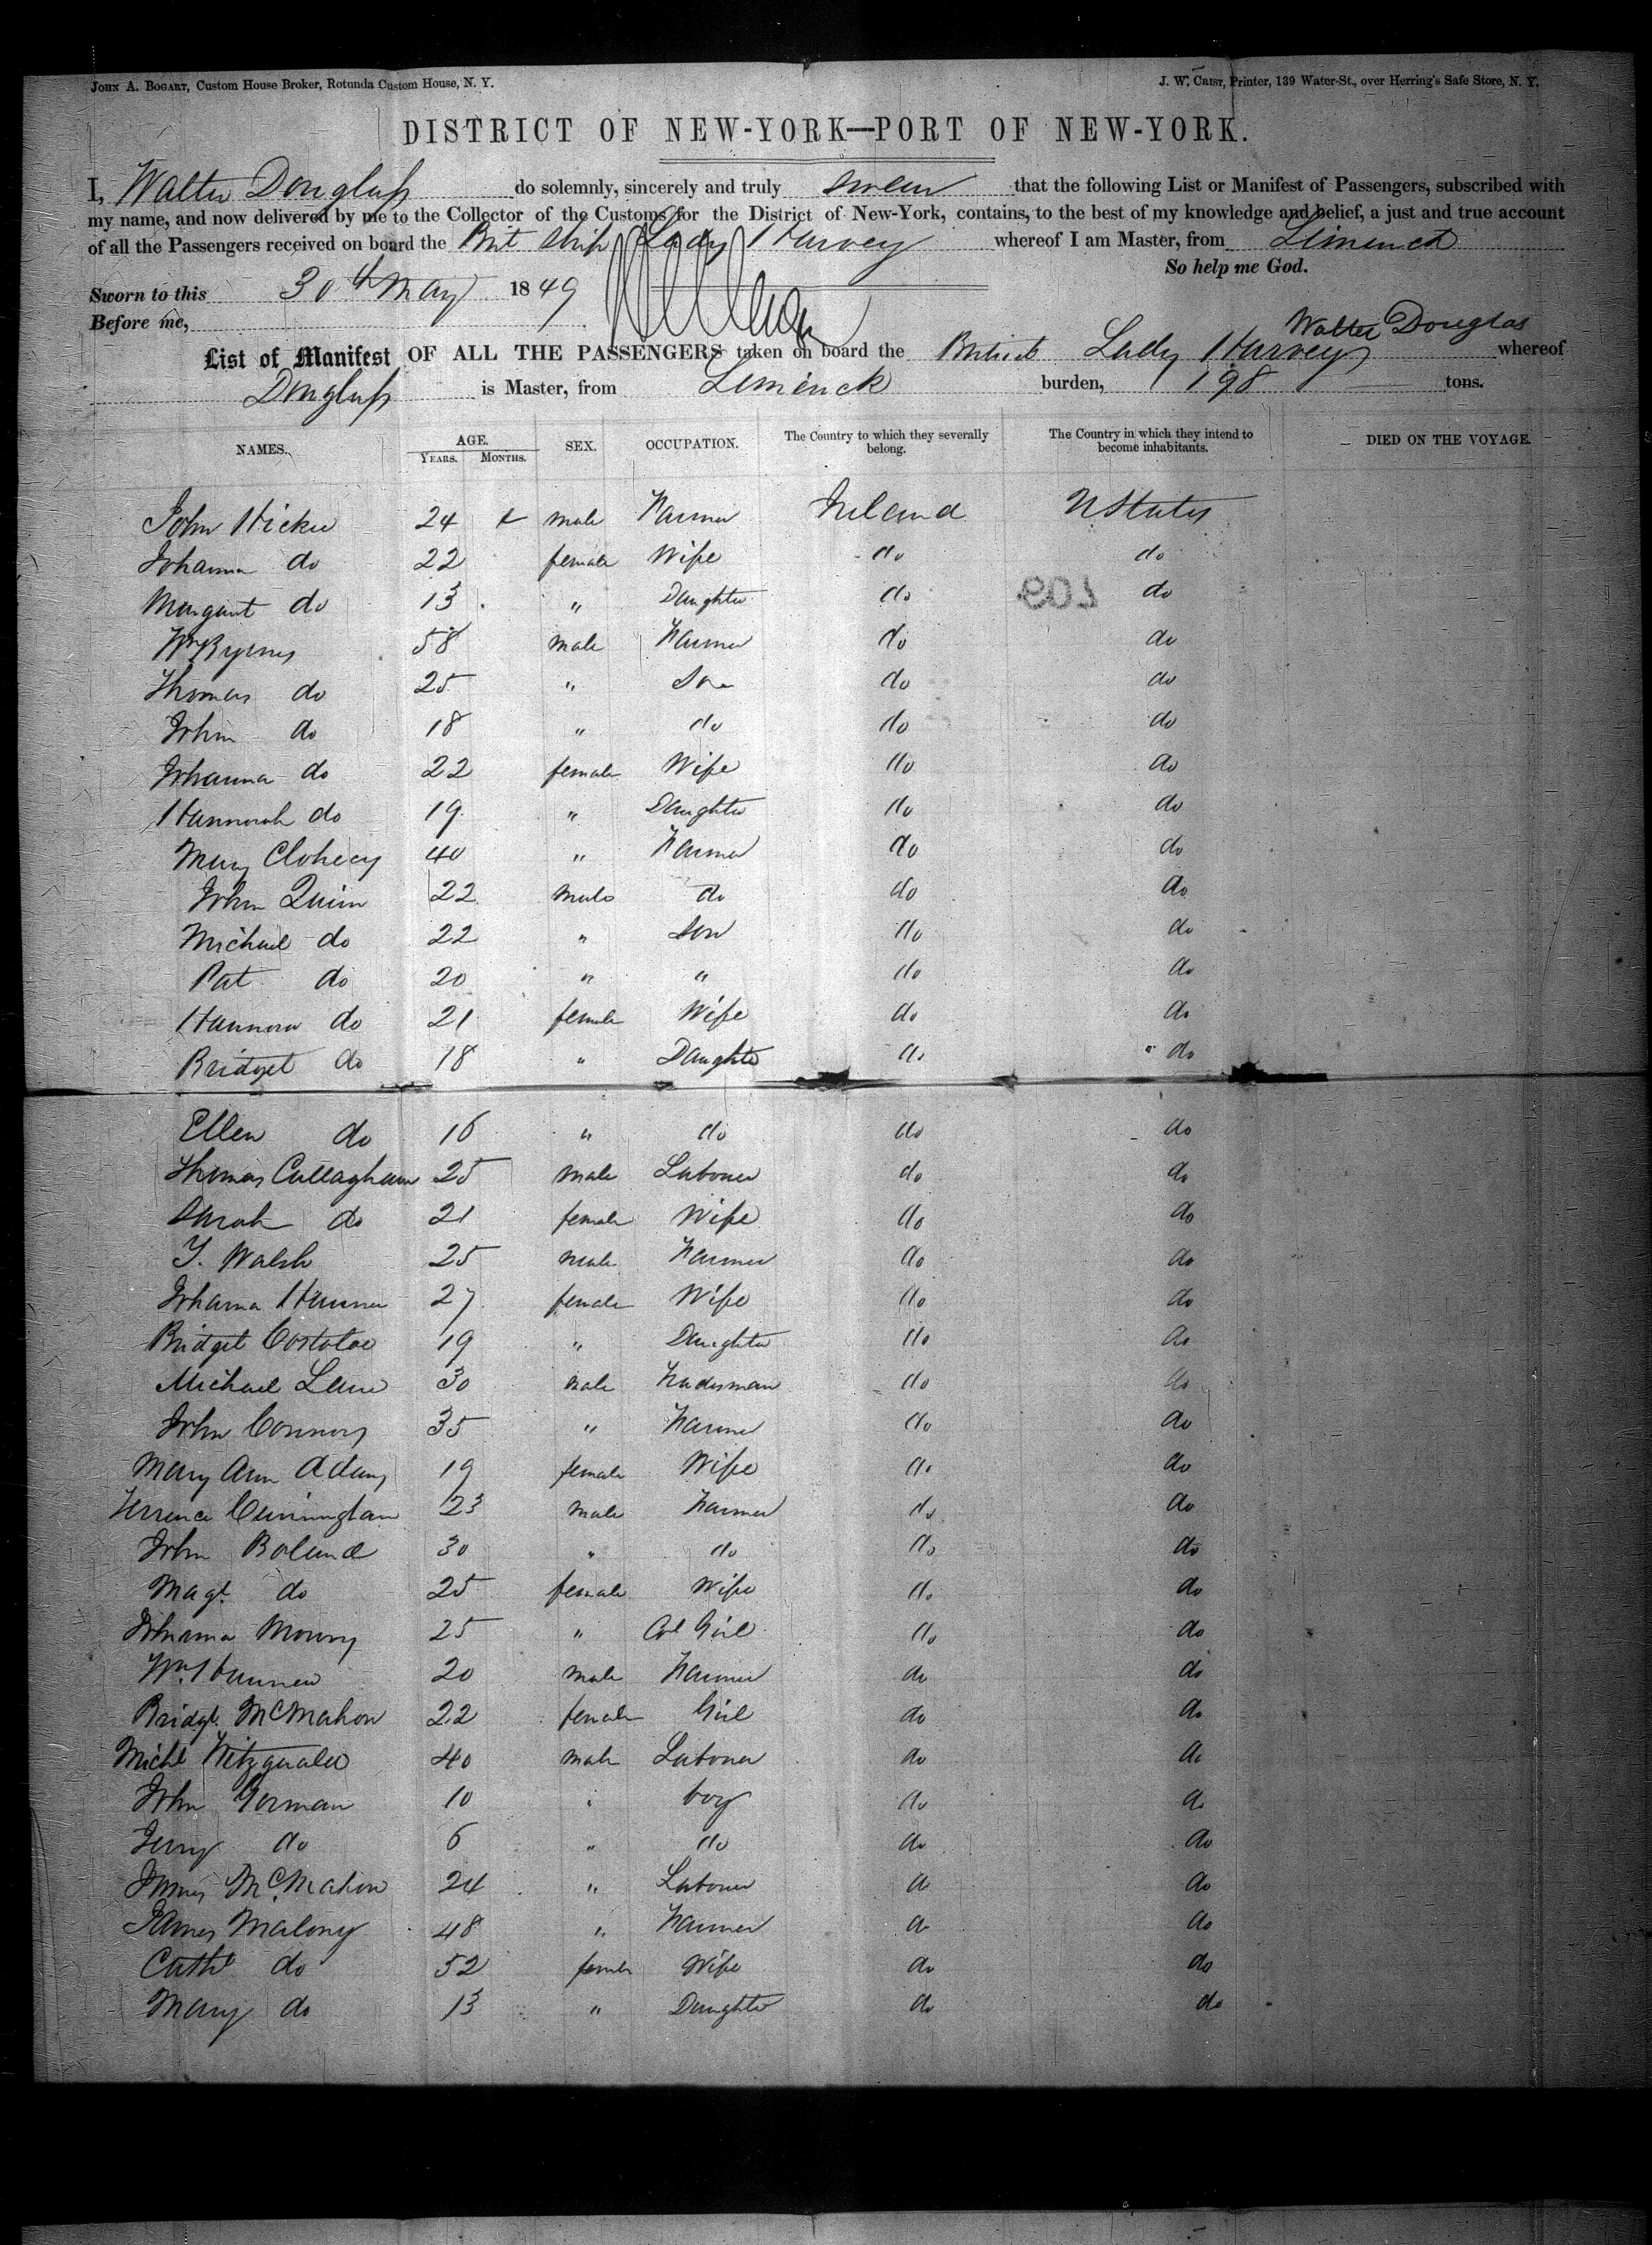 JOHN A. BOGART, Custom House Broker, Rotunda Custom House, N. Y. J. W. CRIST, Printer, 139 Water-St., over Herring's Safe Store, N. Y.
DISTRICT OF NEW-YORK—PORT OF NEW-YORK.
I, Walter Douglass do solemnly, sincerely and truly swear that the following List or Manifest of Passengers, subscribed with
my name, and now delivered by me to the Collector of the Customs for the District of New-York, contains, to the best of my knowledge and belief, a just and true account
of all the Passengers received on board the Brit Ship Lady Harvey whereof I am Master, from Limerick
So help me God.
Sworn to this 30th May 1849
Before me,
Walter Douglas
List of Manifest OF ALL THE PASSENGERS taken on board the British Lady Harvey whereof
Douglass is Master, from Limerick burden, 198 tons.
NAMES. AGE. SEX. OCCUPATION. The Country to which they severally belong. The Country in which they intend to become inhabitants. DIED ON THE VOYAGE.
YEARS. MONTHS.
John Hickie 24 male Farmer Ireland U States
Johanna do 22 female Wife do do
Margaret do 13 " Daughter do do
Wm Byrnes 58 male Farmer do do
Thomas do 25 " Son do do
John do 18 " do do do
Johanna do 22 female Wife do do
Hannorah do 19 " Daughter do do
Mary Clohecy 40 " Farmer do do
John Quinn 22 male do do do
Michael do 22 " Son do do
Pat do 20 " " do do
Hannora do 21 female Wife do do
Bridget do 18 " Daughter do " do
Ellen do 16 " do do do
Thomas Callaghan 25 male Labourer do do
Sarah do 21 female Wife do do
T. Walsh 25 male Farmer do do
Johanna 27 female Wife do do
Bridget Costoloe 19 " Daughter do do
Michael Lane 30 male Tradesman do do
John Connors 35 " Farmer do do
Mary Ann Adams 19 female Wife do do
Terrence Cunningham 23 male Farmer do do
John Boland 30 " do do do
Magt. do 25 female Wife do do
Johanna 25 " Girl do do
Wm. 20 male Farmer do do
Bridgt. McMahon 22 female Girl do do
Michl Fitzgerald 40 male Labourer do do
John Gorman 10 " boy do do
Jerry do 6 " do do do
James McMahon 24 " Labourer do do
James Malony 48 " Farmer do do
Cathe do 52 female Wife do do
Mary do 13 " Daughter do do